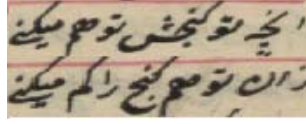 انچه تو کنجش توهم میکنے
زان توهم کنج را کم میکنے